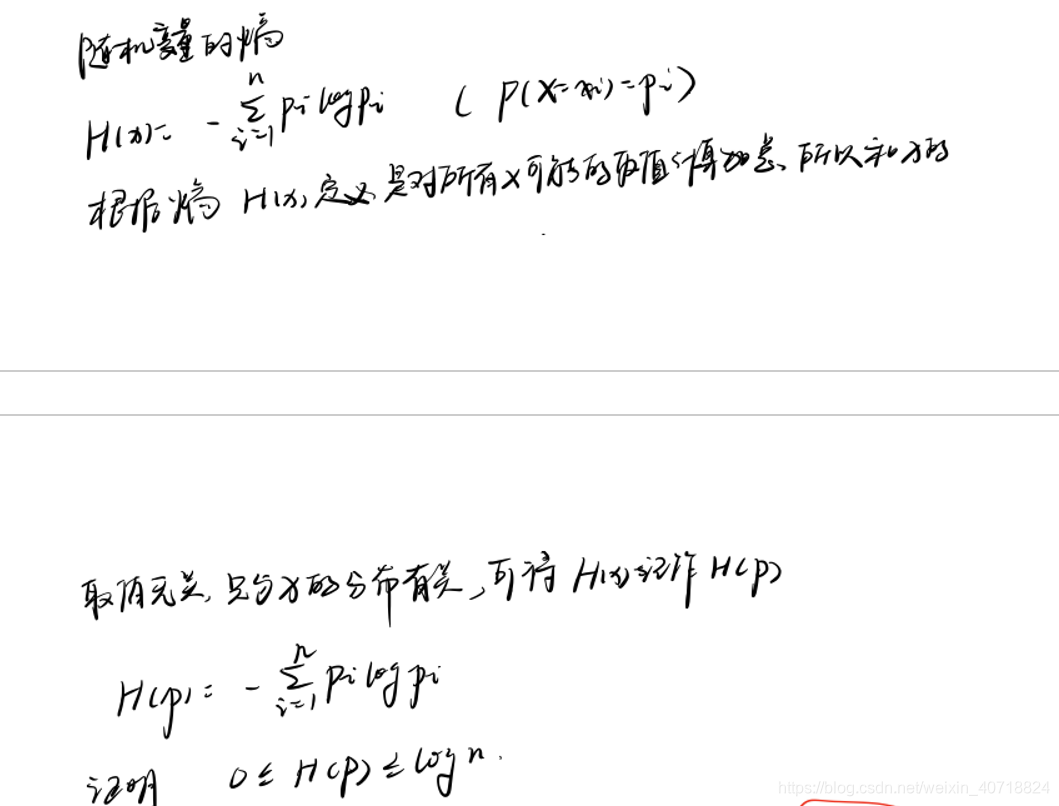 随机变量的熵
H(x)= - ∑_{i=1}^{n} pi log pi ( P(X=xi)=pi )
根据熵 H(x) 定义 是对所有 x 可能的取值计算加总、所以和 x 的
取值无关, 只与 x 的分布有关, 可将 H(x) 记作 H(p)
H(p) = - ∑_{i=1}^{n} pi log pi
证明 0 ≤ H(p) ≤ log n.
https://blog.csdn.net/weixin_40718824